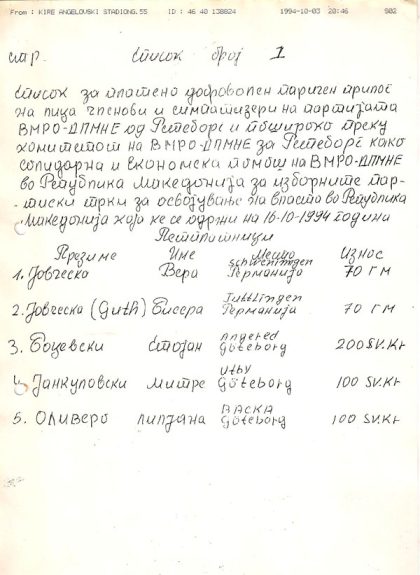 From : KIRE ANGELOVSKI STADIONG.55 ID : 46 40 138824 1994-10-03 20:46 S02
стр. Список број 1
Список за платено доброволен паричен прилог
на лица членови и симпатизери на партијата
ВМРО-ДПМНЕ од Гетеборг и пошироко преку
комитетот на ВМРО-ДПМНЕ за Гетеборг како
солидарна и економска помош на ВМРО-ДПМНЕ
во Република Македонија за изборните пар-
тиски трки за освојување на власта во Република
Македонија која ке се одржи на 16-10-1994 година
Петипотници
Презиме Име Место Износ
1. Јовческа Вера Schwenningen Германија 70 ГМ
2. Јовческа (Guth) Бисера Tuttlingen Германија 70 ГМ
3. Боцевски Стојан Angered Göteborg 200 SV.Kr
4. Јанкуловски Митре Utby Göteborg 100 SV.Kr
5. Оливеро Лилјана BACKA Göteborg 100 SV.Kr